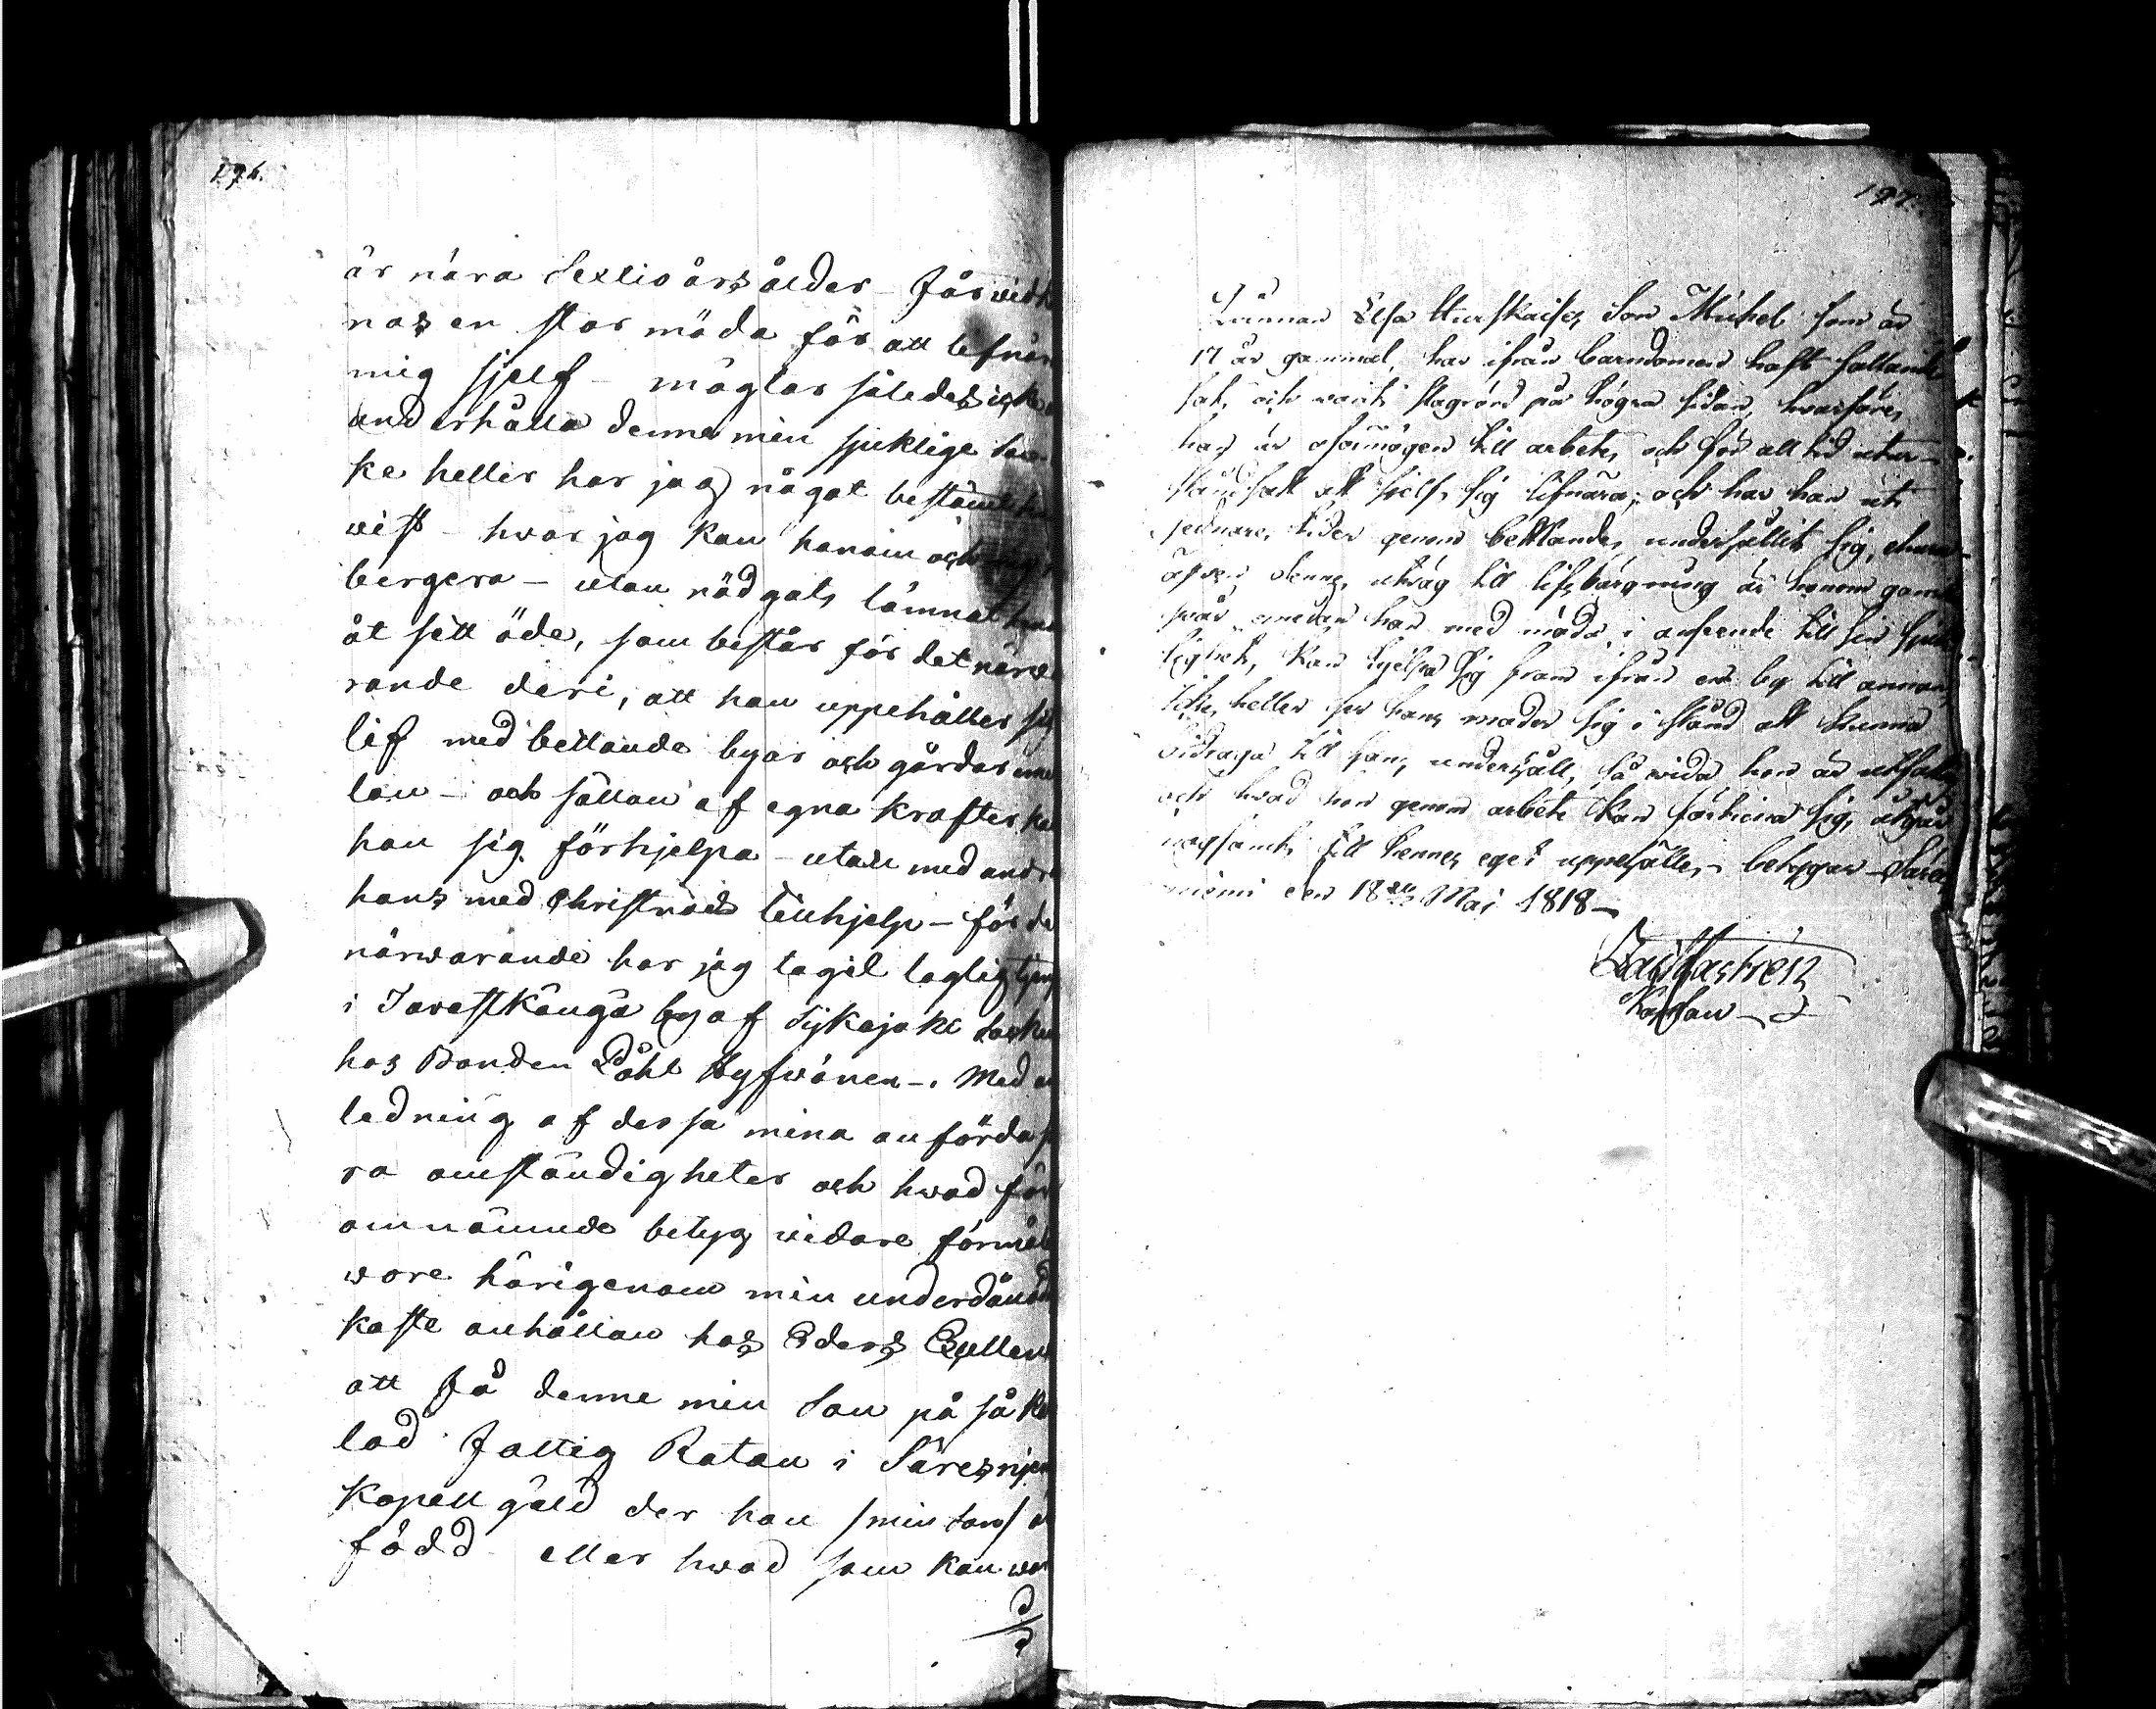 196.
är nära Sextio års ålder – får widkä
nas en stor möda för att lefnära
mig sjelf – mägtar således icke
underhålla denne min sjuklige Son
ke heller har jag något bestämdt hem
wist – hwar jag kan honom och mig
bergera – utan nödgats lämnat honom
åt sitt öde, som består för det närwa
rande deri, att han uppehåller sitt
lif med bettlande byar och gårdar emel
lan – och sällan af egna krafter kan
han sig förhjelpa – utan med andra
hans med Christnas tillhjelp – för det
närwarande har jag tagit laglig tjenst
i Tavastkänga by af Sijkajoki Socken
hos Bonden Påhl Hyfwönen –. Med an
ledning af dessa mina anförda
ra omständigheter och hwad för
omnämnde betyg widare förmäler
wore härigenom min underdånöd
kaste anhållan hos Eders Excellens
att få denne min Son på så kal
lad Fattig Rotan i Säresnjemi
Kapell gäld der han /min Son/ är
född – eller hwad som kan wara
197.
Qwinnan Elsa Son Michel som är
17 år gammal, har ifrån barndomen haft fallande
sot, och warit slagrörd på högra sidan, hwarföre
han är oförmögen till arbete, och för all tid utur
ståndsatt att sjelf sig lifnära; och har han uti
sednare tider genom bettlande underhållit sig, ehuru
äfwen denne utwäg till lifsbärgning är honom ganska
swår emedan han med möda i anseende till sin sjuk
lighet, kan hjelpa sig fram ifrån en by till annan,
icke heller ser hans moder sig i stånd att kunna
bidraga till hans underhåll, så wida hon är utfattig
och hwad hon genom arbete kan förtiena sig, åtgår
nogsamt till hennes eget uppehälle, – betygar – Säres
niemi den 18de Maj 1818 –
Castrén